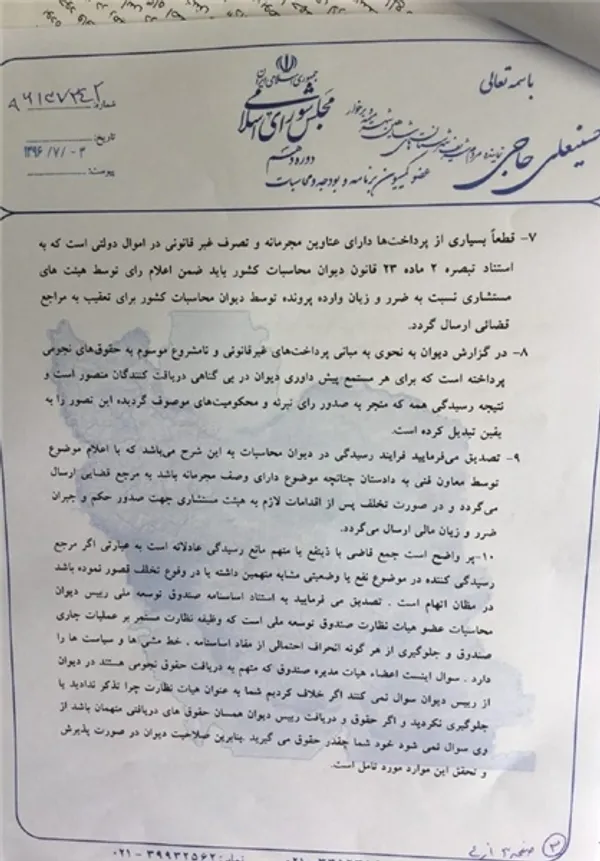 باسمه تعالی
جمهوری اسلامی ایران
مجلس شورای اسلامی
دوره دهم
حسینعلی حاجی
نماینده مردم شریف شهرستانهای شاهین شهر میمه و برخوار
عضو کمیسیون برنامه و بودجه و محاسبات
شماره:
تاریخ: ۱۳۹۶/۷/۰۳
پیوست:
۷- قطعاً بسیاری از پرداخت‌ها دارای عناوین مجرمانه و تصرف غیر قانونی در اموال دولتی است که به
استناد تبصره ۲ ماده ۲۳ قانون دیوان محاسبات کشور باید ضمن اعلام رای توسط هیئت های
مستشاری نسبت به ضرر و زیان وارده پرونده توسط دیوان محاسبات کشور برای تعقیب به مراجع
قضائی ارسال گردد.
۸- در گزارش دیوان به نحوی به مبانی پرداخت‌های غیرقانونی و نامشروع موسوم به حقوق‌های نجومی
پرداخته است که برای هر مستمع پیش داوری دیوان در بی گناهی دریافت کنندگان متصور است و
نتیجه رسیدگی همه که منجر به صدور رای تبرئه و محکومیت‌های موصوف گردیده این تصور را به
یقین تبدیل کرده است.
۹- تصدیق می‌فرمایید فرایند رسیدگی در دیوان محاسبات به این شرح می‌باشد که با اعلام موضوع
توسط معاون فنی به دادستان چنانچه موضوع دارای وصف مجرمانه باشد به مرجع قضایی ارسال
می‌گردد و در صورت تخلف پس از اقدامات لازم به هیئت مستشاری جهت صدور حکم و جبران
ضرر و زیان مالی ارسال می‌گردد.
۱۰-پر واضح است جمع قاضی با ذینفع یا متهم مانع رسیدگی عادلانه است به عبارتی اگر مرجع
رسیدگی کننده در موضوع نفع یا وضعیتی مشابه متهمین داشته یا در وقوع تخلف قصور نموده باشد
در مظان اتهام است . تصدیق می فرمایید به استناد اساسنامه صندوق توسعه ملی رییس دیوان
محاسبات عضو هیات نظارت صندوق توسعه ملی است که وظیفه نظارت مستمر بر عملیات جاری
صندوق و جلوگیری از هر گونه انحراف احتمالی از مفاد اساسنامه ، خط مشی ها و سیاست ها را
دارد . سوال اینست اعضاء هیات مدیره صندوق که متهم به دریافت حقوق نجومی هستند در دیوان
از رییس دیوان سوال نمی کنند اگر خلاف کردیم شما به عنوان هیات نظارت چرا تذکر ندادید یا
جلوگیری نکردید و اگر حقوق و دریافت رییس دیوان همسان حقوق های دریافتی متهمان باشد از
وی سوال نمی شود خود شما چقدر حقوق می گیرید .بنابرین صلاحیت دیوان در صورت پذیرش
و تحقق این موارد مورد تامل است.
صفحه ۳ از
۳
نمابر: ۳۹۹۳۲۵۶۲ - ۰۲۱